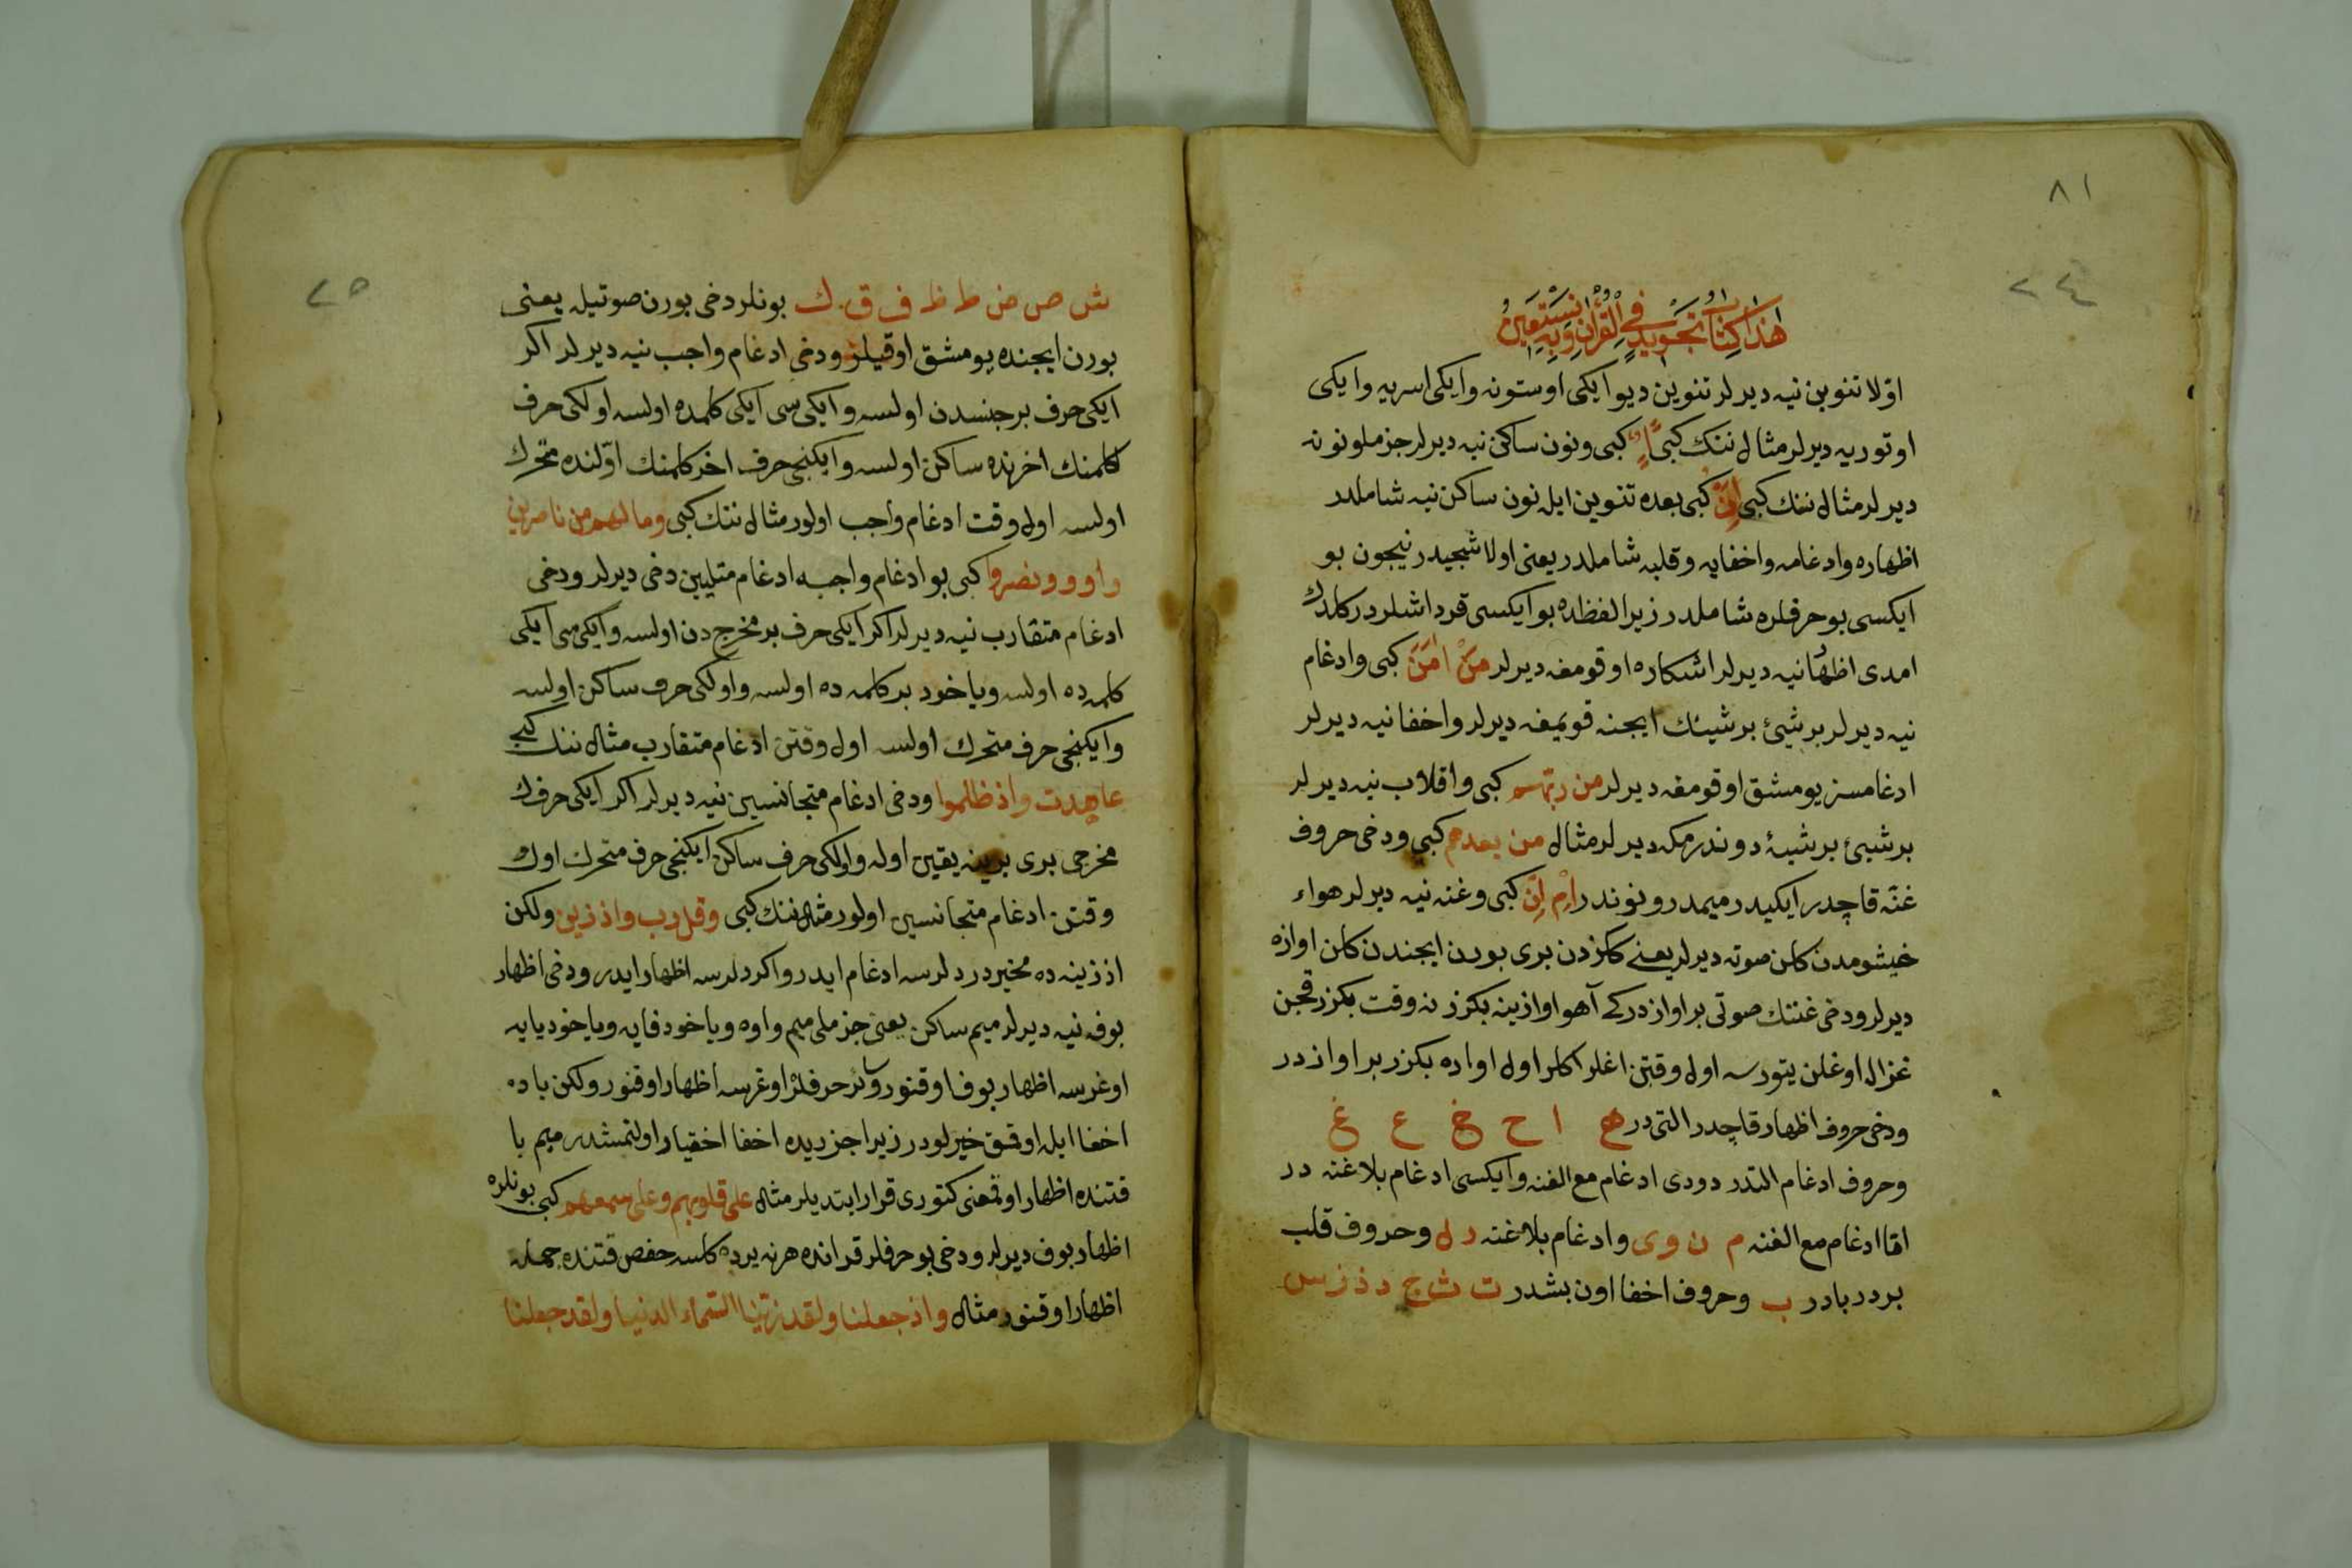 ٨١
٢٤
هَذَا كِتَابُ تَجْوِيدٍ فِي الْقُرْآنِ وَبِهِ نَسْتَعِينُ
اوّلا تنوین نیه دیرلر تنوین دیو ایکی اوستونه و ایکی اسریه و ایکی
اوتوریه دیرلر مثال ننك كبی اً اٍ اٌ كبی و نون ساكن نیه دیرلر جزملو نونه
دیرلر مثال ننك كبی اِنْ كبی بعده تنوین ایله نون ساكن نیه شاملدر
اظهاره و ادغامه و اخفایه و قلبه شاملدر یعنی اولاشیجیدر نیچون بو
ایكسی بو حرفلره شاملدر زیرا لفظده بو ایكسی قرداشلردر
امدی اظهار نیه دیرلر اشكاره اوقومغه دیرلر مَنْ اٰمَنَ كبی و ادغام
نیه دیرلر بر شیئ بر شیئك ایچنه قویمغه دیرلر و اخفا نیه دیرلر
ادغامسز یومشق اوقومغه دیرلر من ربّهم كبی و اقلاب نیه دیرلر
بر شیئ بر شیئه دوندرمكه دیرلر مثال من بعدهم كبی و دخی حروف
غنّه قاچدر ایكیدر میمدر و نوندر اِمْ اِنّ كبی و غنه نیه دیرلر هواء
خیشومدن كلن صوته دیرلر یعنی ككزدن بری بورن ایچندن كلن اوازه
دیرلر و دخی غنه‌نك صوتی بر اوازدر كه آهو اوازینه بكزر نه وقت بكزر قچن
غزال اوغلن یتورسه اول وقتن اغلر اكلر اول اوازه بكزر بر اوازدر
و دخی حروف اظهار قاچدر التی در ه ا ح خ ع غ
و حروف ادغام التدر دودی ادغام مع الغنه و ایكسی ادغام بلا غنه در
امّا ادغام مع الغنه م ن و ی و ادغام بلا غنه ر ل و حروف قلب
بردر بادر ب و حروف اخفا اون بشدر ت ث ج د ذ ز س
٢٥
ش ص ض ط ظ ف ق ك بونلر دخی بورن صوتیله یعنی
بورن ایچنده یومشق اوقیلر و دخی ادغام واجب نیه دیرلر اكر
ایكی حرف بر جنسدن اولسه و ایكی‌سی ایكی كلمده اولسه اولكی حرف
كلمنك اخرنده ساكن اولسه و ایكنجی حرف اخر كلمنك اوّلنده متحرك
اولسه اول وقت ادغام واجب اولور مثال ننك كبی وما لهم من ناصرین
واووا ونصروا كبی بو ادغام واجبه ادغام مثلیین دخی دیرلر و دخی
ادغام متقارب نیه دیرلر اكر ایكی حرف بر مخرجدن اولسه و ایكی‌سی ایكی
كلمه‌ده اولسه و یا خود بر كلمه‌ده اولسه و اولكی حرف ساكن اولسه
و ایكنجی حرف متحرك اولسه اول وقتن ادغام متقارب مثال ننك كبی
عاهدت واذ ظلموا و دخی ادغام متجانسین نیه دیرلر اكر ایكی حرفك
مخرجی بری برینه یقین اوله و اولكی حرف ساكن ایكنجی حرف متحرك اول
وقتن ادغام متجانسین اولور مثال ننك كبی وقل رب واذ زین ولكن
اذ زینه‌ده مخیردر دلرسه ادغام ایدر و اكر دلرسه اظهار ایدر و دخی اظهار
بوفه نیه دیرلر میم ساكن یعنی جزملی میم واوه و یا خود فایه و یا خود یایه
اوغرسه اظهار بوف اوقنور و سائر حرفلر اوغرسه اظهار اوقنور ولكن باده
اخفا ایله اوقمق خیرلودر زیرا جزریده اخفا اختیار اولنمشدر میم با
قتنده اظهار اوقمغنی كتوری قرار ایتدیلر مثال علی قلوبهم وعلی سمعهم كبی بونلره
اظهار بوف دیرلر و دخی بو حرفلر قرانده هر نه یرده كلسه حفص قتنده جمله
اظهار اوقنور مثال واذ جعلنا ولقد زیّنا السّماء الدنیا ولقد جعلنا